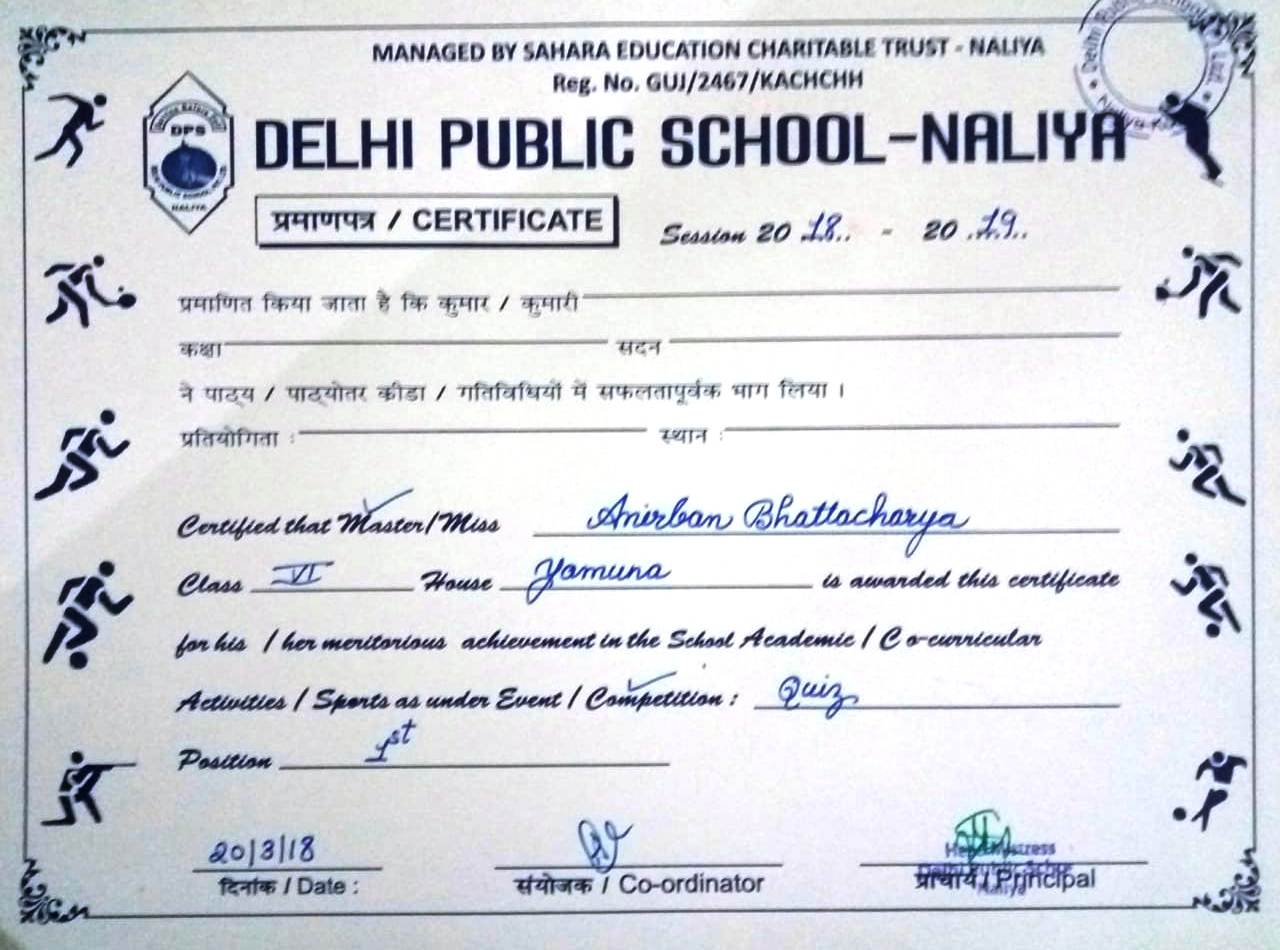 MANAGED BY SAHARA EDUCATION CHARITABLE TRUST - NALIYA
Reg. No. GUJ/2467/KACHCHH
DPS
NALIYA
DELHI PUBLIC SCHOOL-NALIYA
प्रमाणपत्र / CERTIFICATE
Session 20 18.. - 20 .19..
प्रमाणित किया जाता है कि कुमार / कुमारी
कक्षा सदन
ने पाठ्य / पाठ्योतर कीडा / गतिविधियों में सफलतापूर्वक भाग लिया ।
प्रतियोगिता : स्थान :
Certified that Master/Miss Anirban Bhattacharya
Class VI House Yamuna is awarded this certificate
for his / her meritorious achievement in the School Academic / Co-curricular
Activities / Sports as under Event / Competition : Quiz
Position 1st
20/3/18
Headmistress
Naliya
दिनांक / Date : संयोजक / Co-ordinator प्राचार्य / Principal